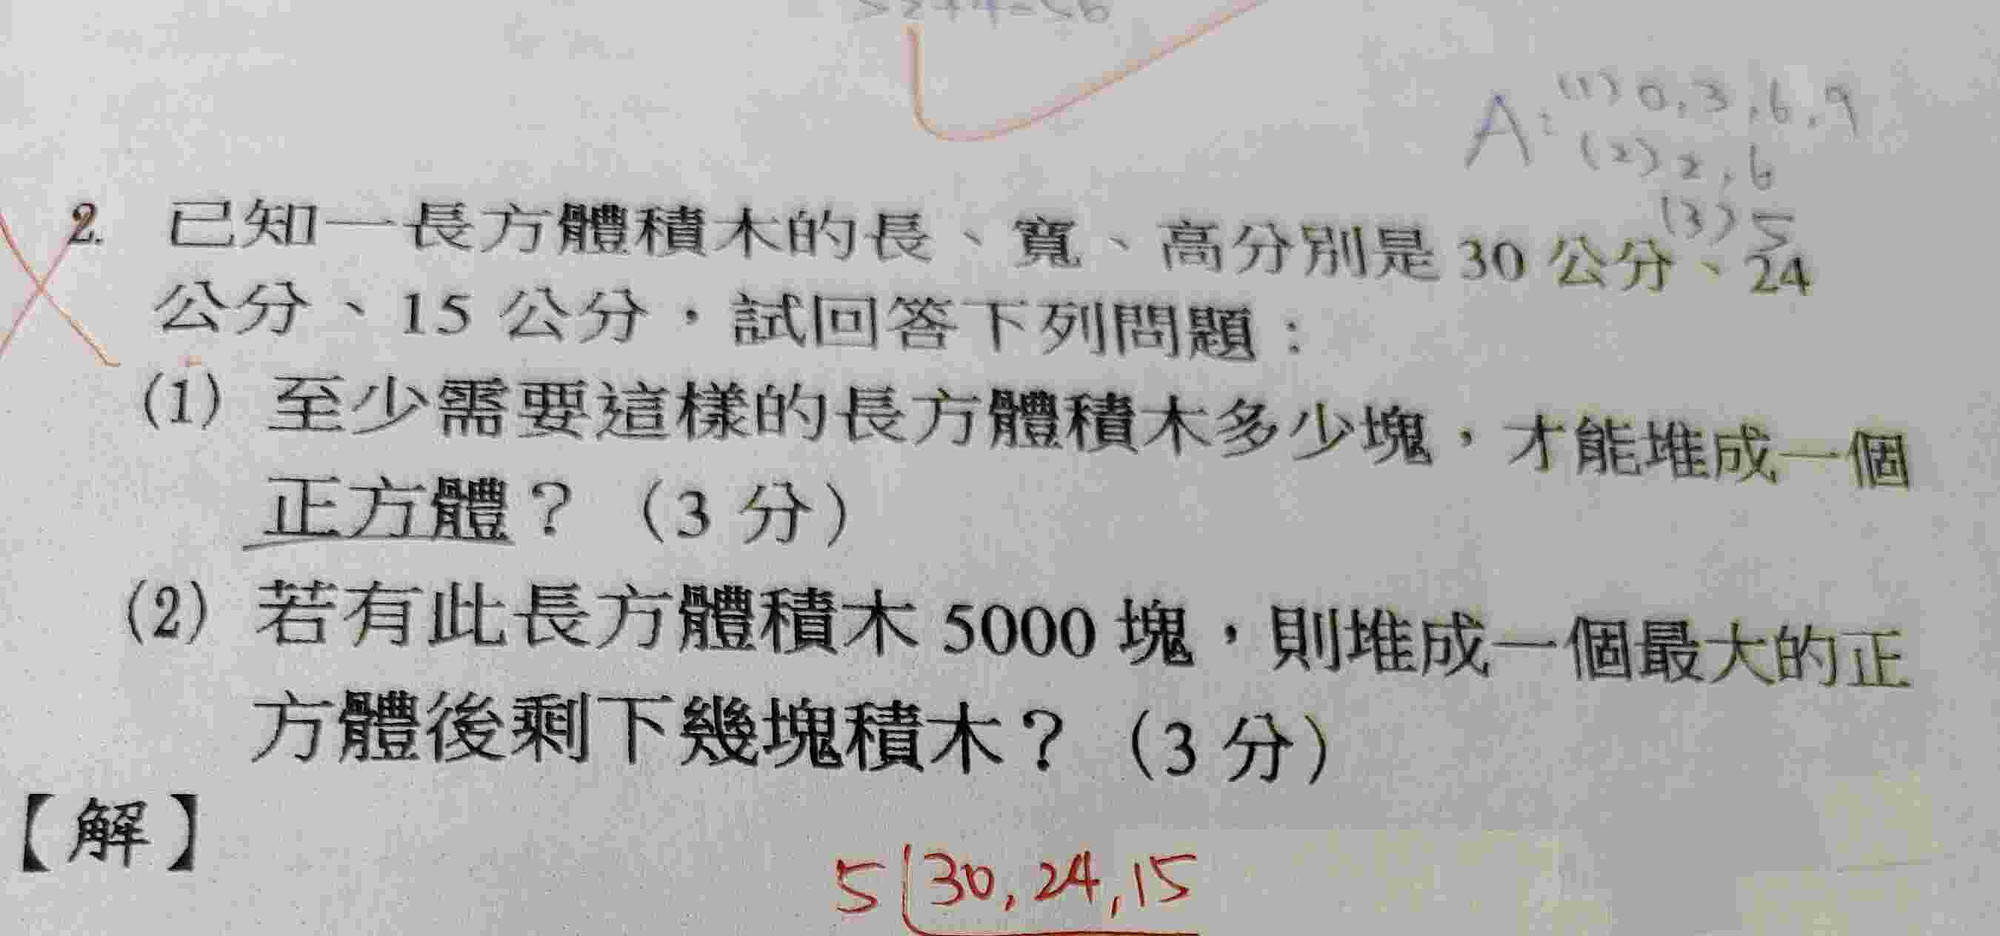 A:(1)0,3,6,9
(2)2,6
(3)5
2. 已知一長方體積木的長、寬、高分別是 30 公分、24
公分、15 公分，試回答下列問題：
(1) 至少需要這樣的長方體積木多少塊，才能堆成一個
正方體？（3 分）
(2) 若有此長方體積木 5000 塊，則堆成一個最大的正
方體後剩下幾塊積木？（3 分）
【解】
5 30,24,15